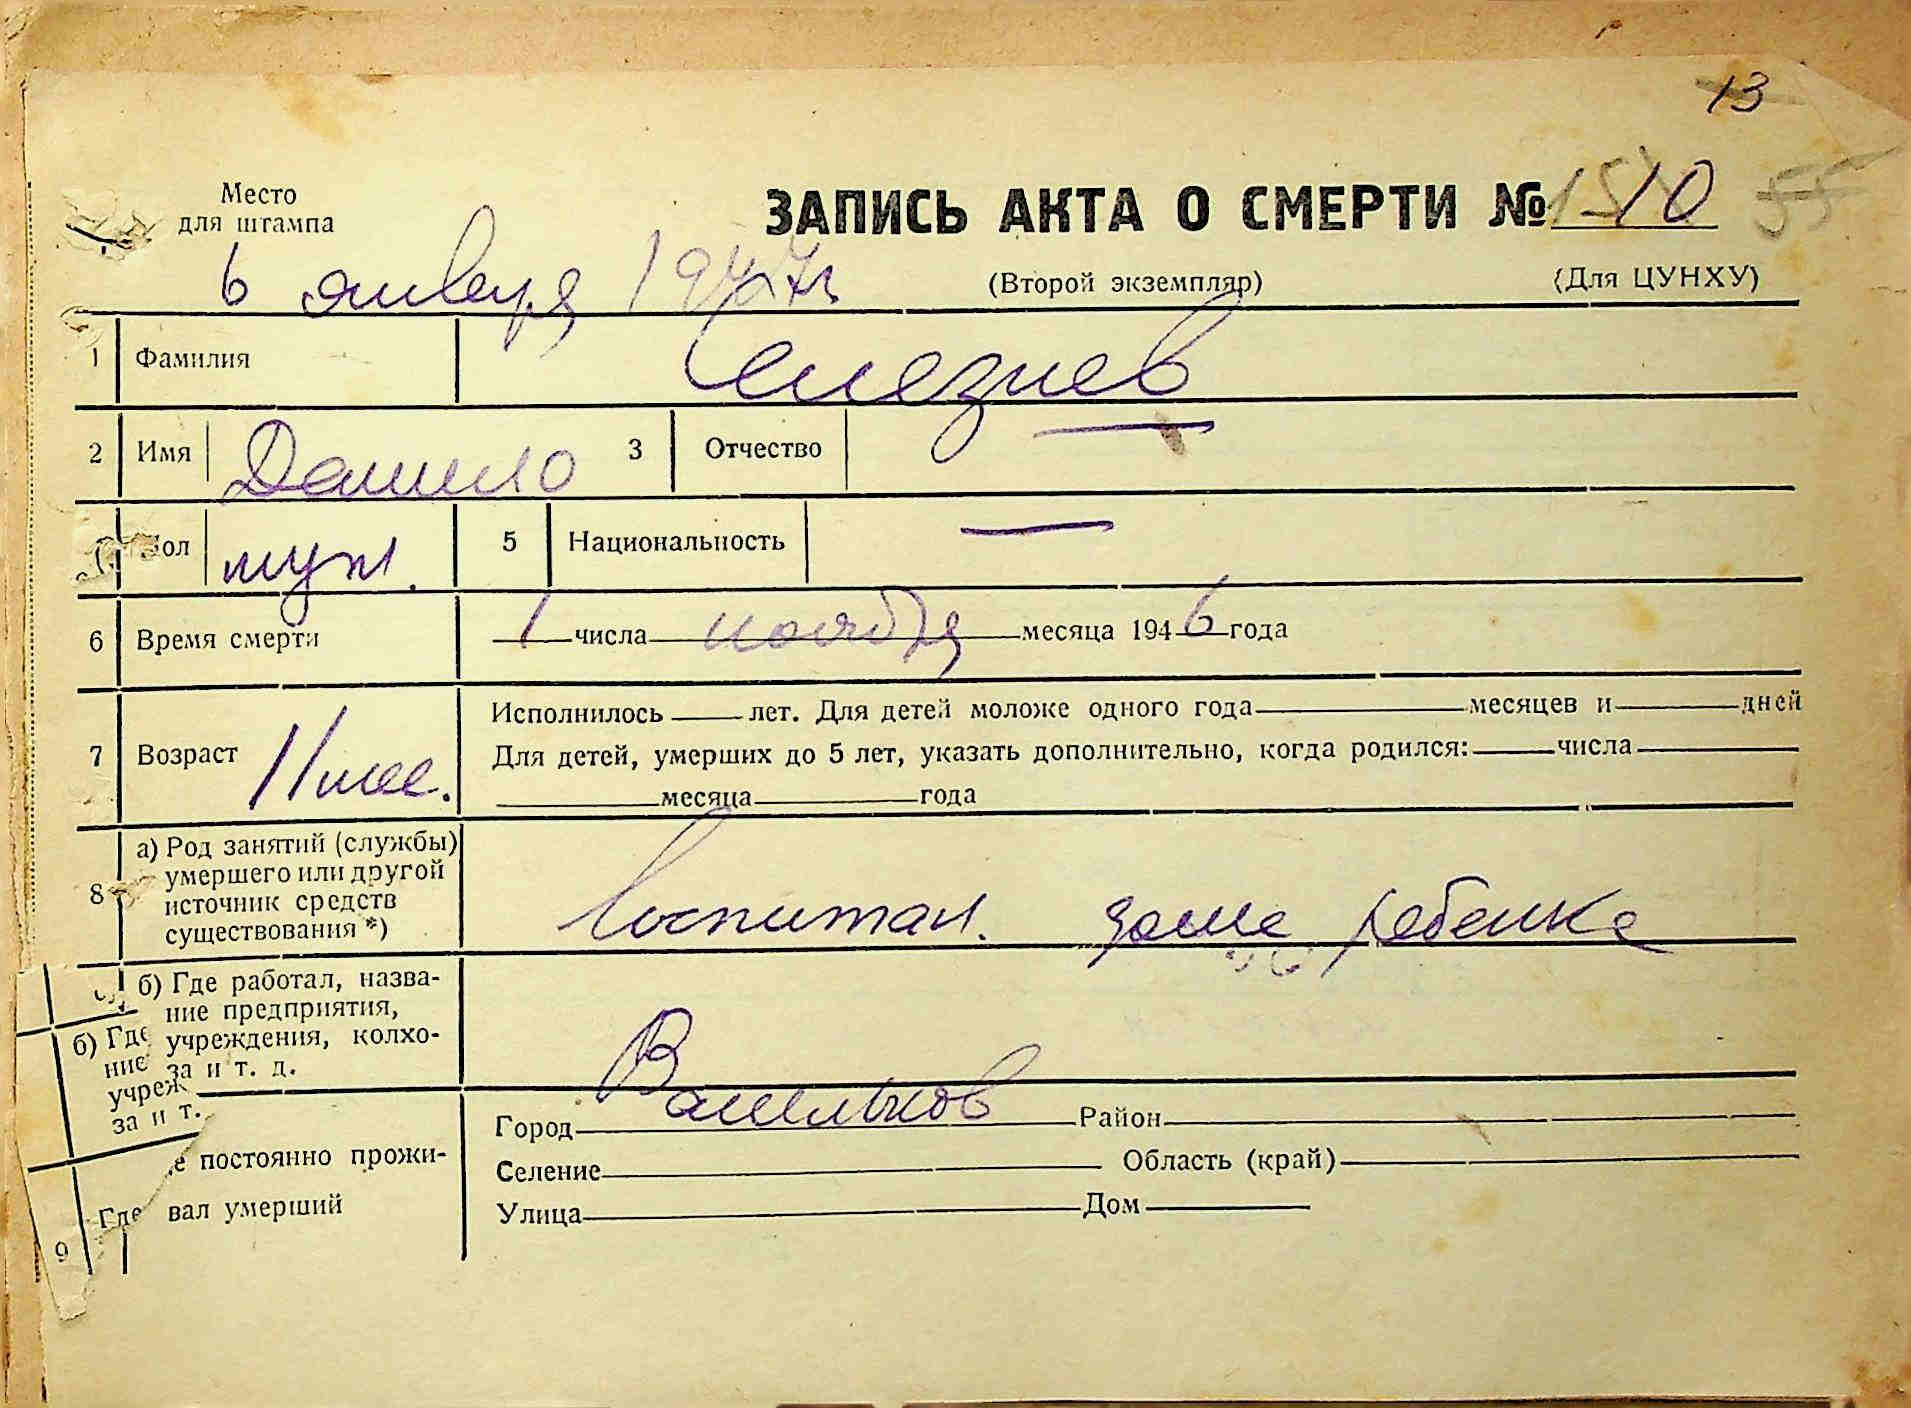 13
Место
для штампа
ЗАПИСЬ АКТА О СМЕРТИ № 10 55
6 января 1947 г.
(Второй экземпляр) (Для ЦУНХУ)
1 Фамилия Селезнев
2 Имя Данило 3 Отчество —
Пол муж. 5 Национальность —
6 Время смерти 1 числа ноября месяца 1946 года
7 Возраст 11 мес.
Исполнилось лет. Для детей моложе одного года месяцев и дней
Для детей, умерших до 5 лет, указать дополнительно, когда родился: числа
месяца года
8 а) Род занятий (службы)
умершего или другой
источник средств
существования *)
Воспитан. доме ребенка
б) Где работал, назва-
ние предприятия,
учреждения, колхо-
за и т. д.
б) Где
ние
учреж
за и т.
Город Васильков Район
е постоянно прожи-
Селение Область (край)
Где вал умерший
Улица Дом
9